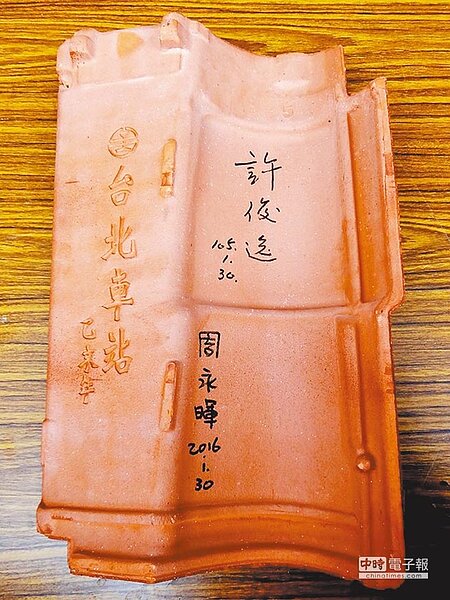 台北車站
乙未年
許俊逸
105.
1.
30.
周永暉
2016
1.
30
中時電子報
chinatimes.com